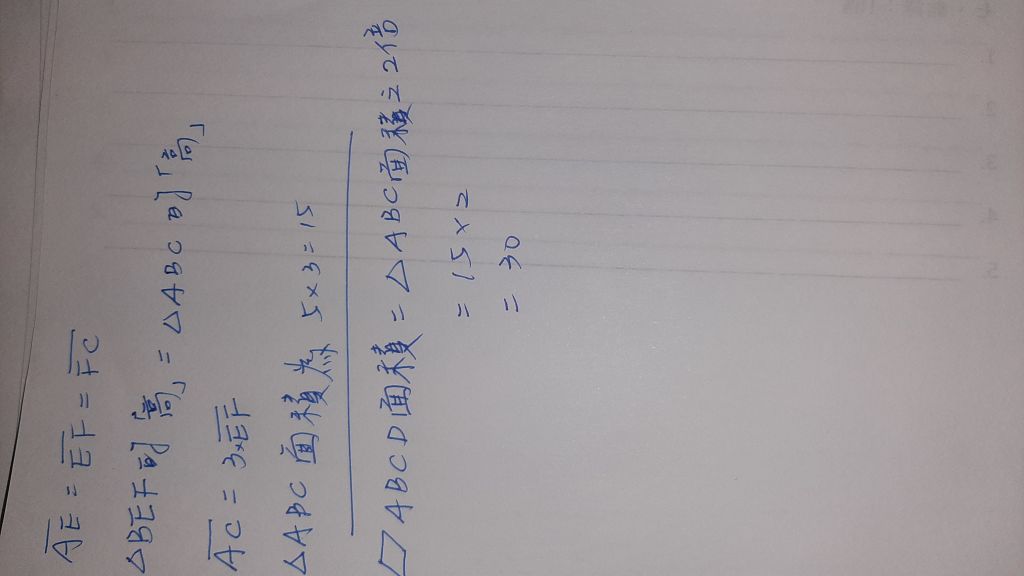 AE = EF = FC
△BEF的「高」= △ABC的「高」
AC = 3×EF
△ABC面積為 5×3=15
▱ABCD面積 = △ABC面積之2倍
= 15×2
= 30